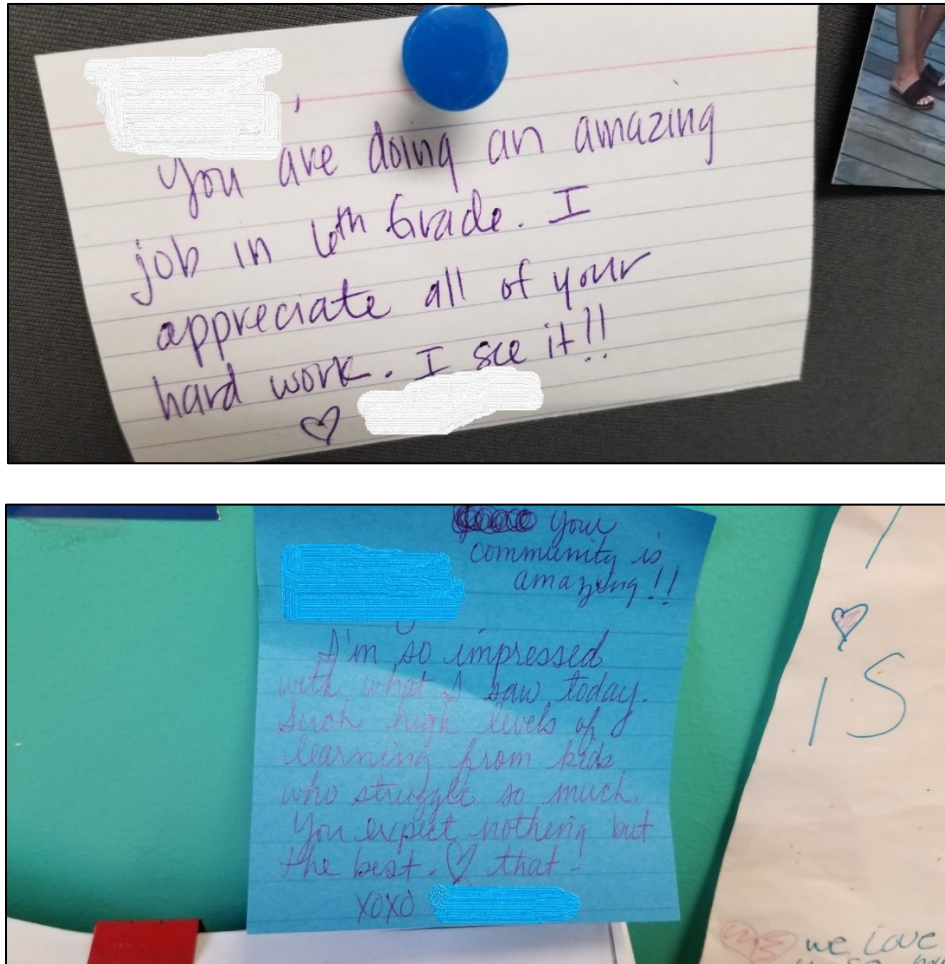 You are doing an amazing
job in 6th Grade. I
appreciate all of your
hard work. I see it!!
♡
your
community is
amazing!!
I'm so impressed
with what I saw today.
Such high levels of
learning from kids
who struggle so much.
You expect nothing but
the best. ♡ that -
XOXO
IS
we Love